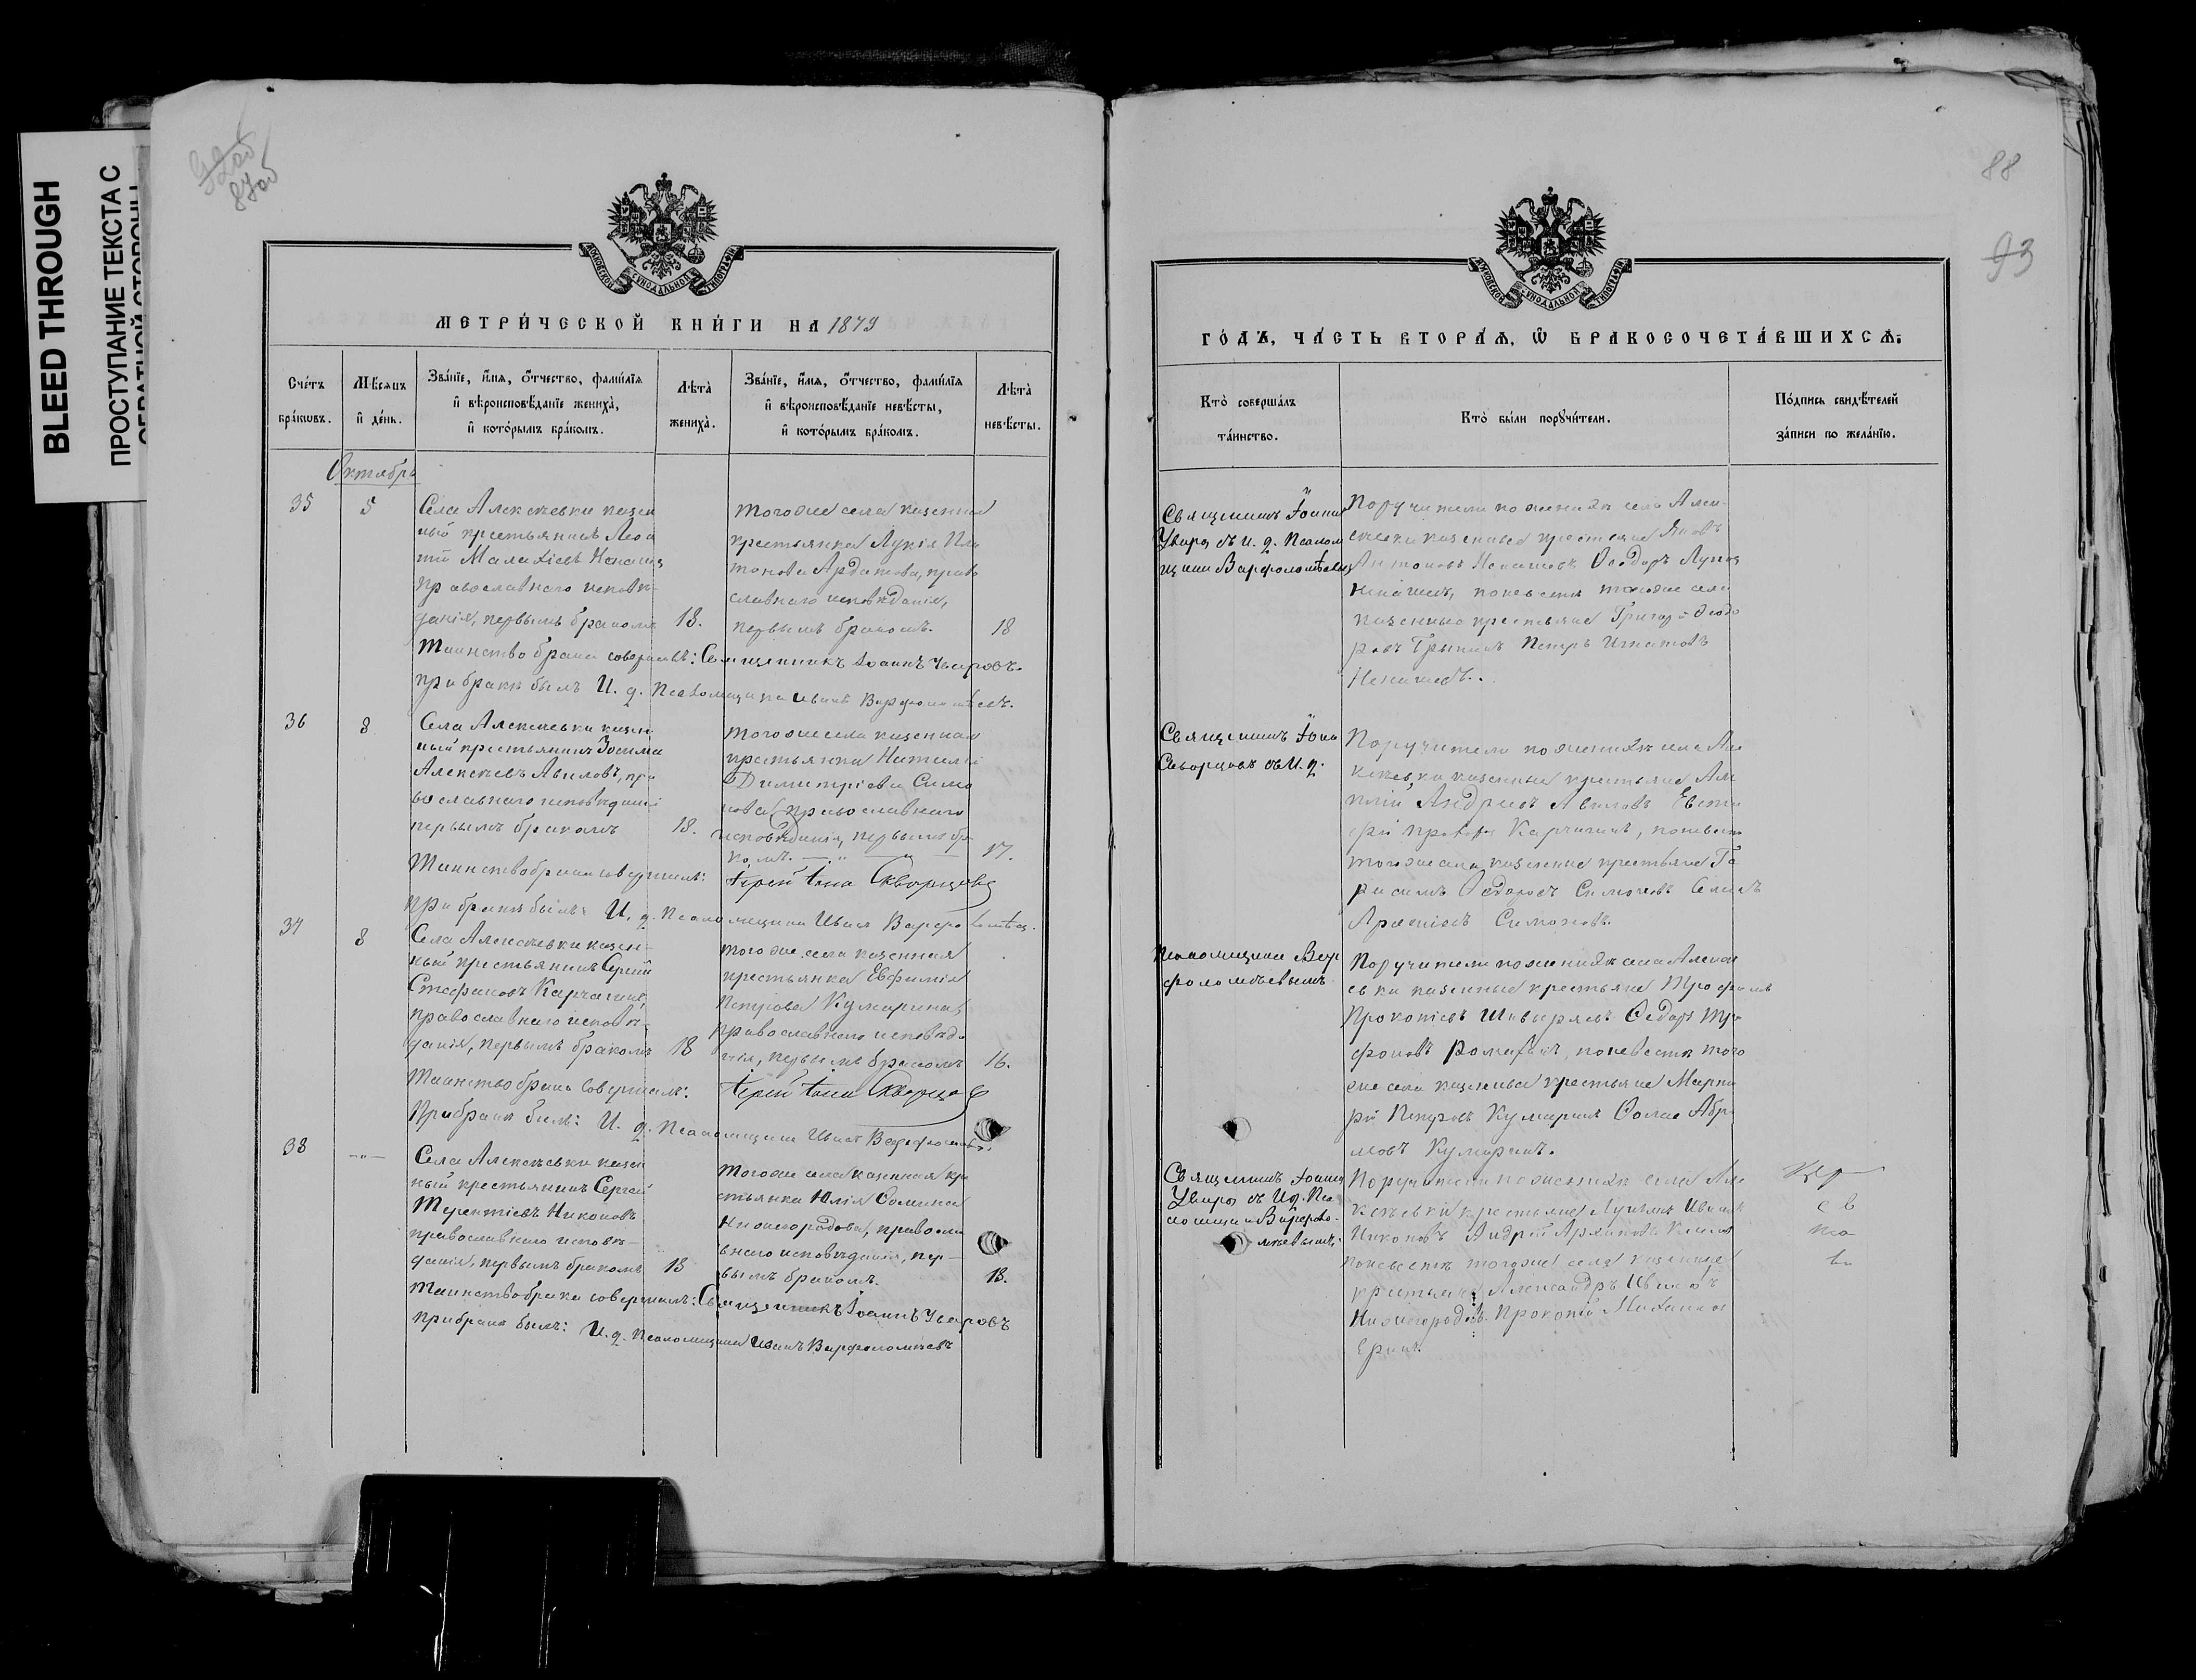 BLEED THROUGH
ПРОСТУПАНИЕ ТЕКСТА С
ОБРАТНОЙ СТОРОНЫ
92об
87об
МОСКОВСКОЙ СУНОДАЛЬНОЙ ТИПОГРАФІИ
МЕТРИ́ЧЕСКОЙ КНИ́ГИ НА 1879
Сче́тъ
бра́кωвъ.
Мѣ́сѧцъ
и҆ де́нь.
Зва́нїе, и҆́мѧ, ѻ҆́тчество, фами́лїѧ
и҆ вѣроисповѣ́данїе жениха̀,
и҆ кото́рымъ бра́комъ.
Лѣ́та̀
жениха̀.
Зва́нїе, и҆́мѧ, ѻ҆́тчество, фами́лїѧ
и҆ вѣроисповѣ́данїе невѣ́сты,
и҆ кото́рымъ бра́комъ.
Лѣ́та̀
невѣ́сты.
Октябрь
35
5
Села Алексѣевки казен
ный крестьянинъ Леон
тій Малахіевъ Ненашев
православнаго исповѣ-
данія, первымъ бракомъ
18.
того же села казенная
крестьянка Лукія Пла
тонова Ардатова, право
славнаго исповѣданія,
первымъ бракомъ.
18
Таинство брака совершалъ: Священникъ Іоаннъ Уваровъ.
при бракѣ былъ И. д. Псаломщика Иванъ Варфоломѣевъ.
36
8
Села Алексѣевки казен
ный крестьянинъ Зосима
Алексѣевъ Авиловъ, пра
вославнаго исповѣданія
первымъ бракомъ
18.
того же села казенная
крестьянка Наталія
Димитріева Симо
нова православнаго
исповѣданія, первымъ бра
комъ.
17.
Таинство брака совершалъ: Іерей Іона Скворцовъ
при бракѣ былъ И. д. Псаломщика Иванъ Варфоломѣев.
37
8
Села Алексѣевки казен-
ный крестьянинъ Сергій
Стефановъ Карчагинъ,
православнаго исповѣ-
данія, первымъ бракомъ
18
того же села казенная
крестьянка Евфимія
Петрова Кумарина,
православнаго исповѣда
нія, первымъ бракомъ
16.
Таинство брака совершалъ: Іерей Іона Скворцов
При бракѣ былъ: И. д. Псаломщика Иванъ Варфоломѣев.
38
-„-
Села Алексѣевки казен
ный крестьянинъ Сергей
Терентіевъ Никоновъ
православнаго исповѣ-
данія, первымъ бракомъ
18
того же села казенная кре
стьянка Юлія Ѳомина
Нижегородова, правосла
внаго исповѣданія, пер-
вымъ бракомъ.
18.
Таинство брака совершалъ: Священникъ Іоаннъ Уваровъ
При бракѣ былъ: И. д. Псаломщика Иванъ Варфоломѣевъ
88
93
МОСКОВСКОЙ СУНОДАЛЬНОЙ ТИПОГРАФІИ
ГО́ДЪ, ЧА́СТЬ ВТОРА́Ѧ, Ѽ БРАКОСОЧЕТА́ВШИХСѦ:
Кто̀ соверша́лъ
та́инство.
Кто̀ бы́ли порꙋчи́тели.
По́дпись свидѣ́телей
за́писи по жела́нїю.
Священникъ Іоаннъ
Уваров съ и. д. Псалом
щика Варфоломѣевымъ
Поручители по женихѣ села Алек
сѣевки казенные крестьяне Яковъ
Антоновъ Ненашевъ Ѳеодоръ
Ненашевъ, по невестѣ того же села
казенные крестьяне Григорій Ѳеодо
ровъ Петръ Игнатовъ
Ненашевъ.
Священникъ Іона
Скворцовъ съ И. д.
Поручители по женихѣ села Але
ксѣевки казенные крестьяне
Андреевъ Авиловъ
Карчагинъ, по невестѣ
того же села казенные крестьяне Ге
расимъ Ѳедоровъ Симоновъ
Симоновъ.
Псаломщика Вар
фоломѣевымъ
Поручители по женихѣ села Алексѣ
евки казенные крестьяне Трофимъ
Прокопіевъ Ѳедоръ
по невестѣ того
же села казенные крестьяне
Петровъ Кумаринъ Ѳома Абра
мовъ Кумаринъ.
Священникъ Іоаннъ
Уваров съ И.д. Пса
ломщика Варфоло-
мѣевымъ
Поручители по женихѣ села Але
ксѣевки крестьяне Лукіянъ Ивановъ
Никоновъ Андрей Архиповъ
по невестѣ того же села казенные
крестьяне Александръ Ивановъ
Нижегородовъ. Прокопій
Еринъ.